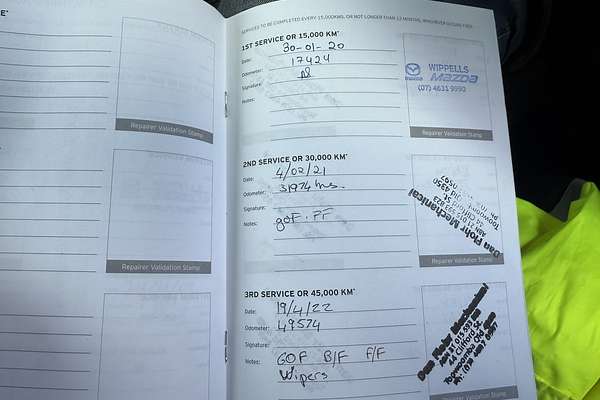 SERVICES TO BE COMPLETED EVERY 15,000KMS, OR NOT LONGER THAN 12 MONTHS, WHICHEVER OCCURS FIRST
1ST SERVICE OR 15,000 KM*
Date: 30-01-20
Odometer: 17424
Signature:
Notes:
WIPPELLS
mazda
(07) 4631 9990
Repairer Validation Stamp
2ND SERVICE OR 30,000 KM*
Date: 4/02/21
Odometer: 31974
Signature:
Notes: GOF. PF
Dan Rohr Mechanical
Repairer Validation Stamp
3RD SERVICE OR 45,000 KM*
Date: 19/4/22
Odometer: 49574
Signature:
Notes: GOF B/F F/F
Wipers
Dan Rohr Mechanical
44 Clifford St
Repairer Validation Stamp
Repairer Validation Stamp
Repairer Validation Stamp